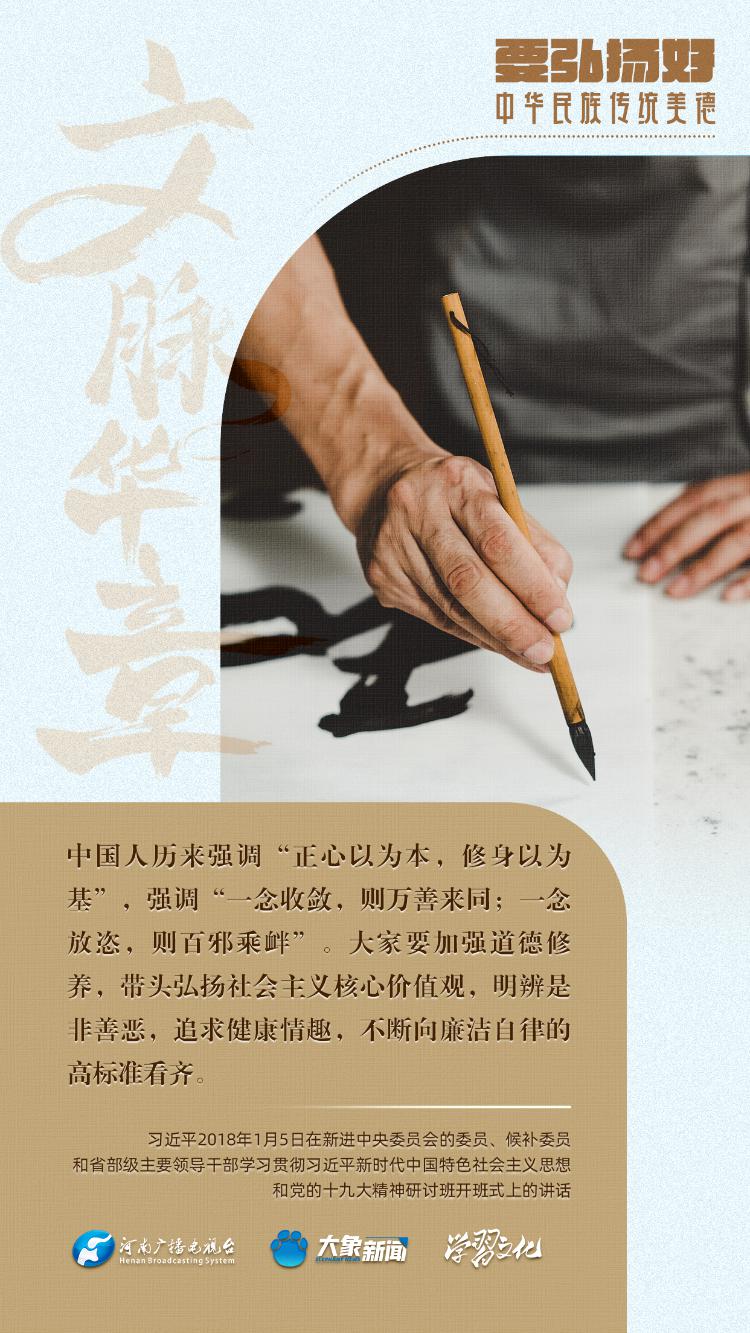 要弘扬好
中华民族传统美德
文脉华章
中国人历来强调“正心以为本，修身以为
基”，强调“一念收敛，则万善来同；一念
放恣，则百邪乘衅”。大家要加强道德修
养，带头弘扬社会主义核心价值观，明辨是
非善恶，追求健康情趣，不断向廉洁自律的
高标准看齐。
习近平2018年1月5日在新进中央委员会的委员、候补委员
和省部级主要领导干部学习贯彻习近平新时代中国特色社会主义思想
和党的十九大精神研讨班开班式上的讲话
河南广播电视台
Henan Broadcasting System
大象新闻
ELEPHANT NEWS
学習文化